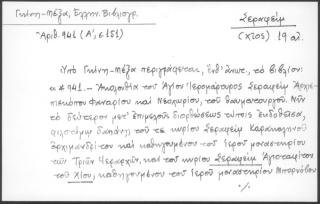 Γκίνη-Μέξα, Ἑλλην. Βιβλιογρ.
Ἀριθ. 941 (Α', σ. 151)
Σεραφεὶμ
(Χῖος) 19 αἰ.
Ὑπὸ Γκίνη-Μέξα περιγράφεται, ἔνθ' ἀνωτ., τὸ βιβλίον:
« * 941. — Ἀκολουθία τοῦ Ἁγίου Ἱερομάρτυρος Σεραφεὶμ Ἀρχιε-
πισκόπου Φαναρίου καὶ Νεοχωρίου, τοῦ θαυματουργοῦ. Νῦν
τὸ δεύτερον μετ' ἐπιμελοῦς διορθώσεως τύποις ἐκδοθεῖσα,
φιλοτίμῳ δαπάνῃ τοῦ τε κυρίου Σεραφεὶμ
ἀρχιμανδρίτου καὶ καθηγουμένου τοῦ ἱεροῦ μοναστηρίου
τῶν Τριῶν Ἱεραρχῶν, καὶ τοῦ κυρίου Σεραφεὶμ
τοῦ Χίου, καὶ καθηγουμένου τοῦ ἱεροῦ μοναστηρίου Μπαρνόβου
·/.